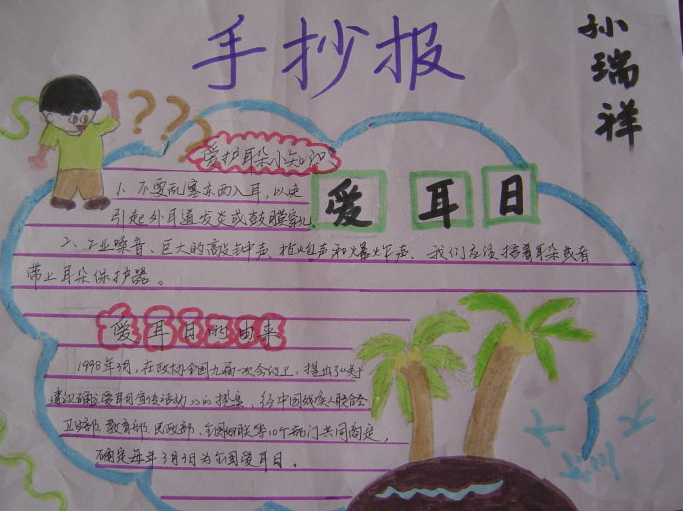 手抄报
孙瑞祥
???
爱护耳朵小知识
爱耳日
1、不要乱塞东西入耳,以免
引起外耳道发炎或鼓膜穿孔。
2、工业噪音、巨大的敲钟声、枪炮声和爆炸声,我们应该捂着耳朵或者
带上耳朵保护器。
爱耳日的由来
1998年3月,在政协全国九届一次会议上,提出了《关于
建议确立爱耳日宣传活动》的提案,经中国残疾人联合会
卫生部、教育部、民政部、全国妇联等10个部门共同商定,
确定每年3月3日为全国爱耳日。